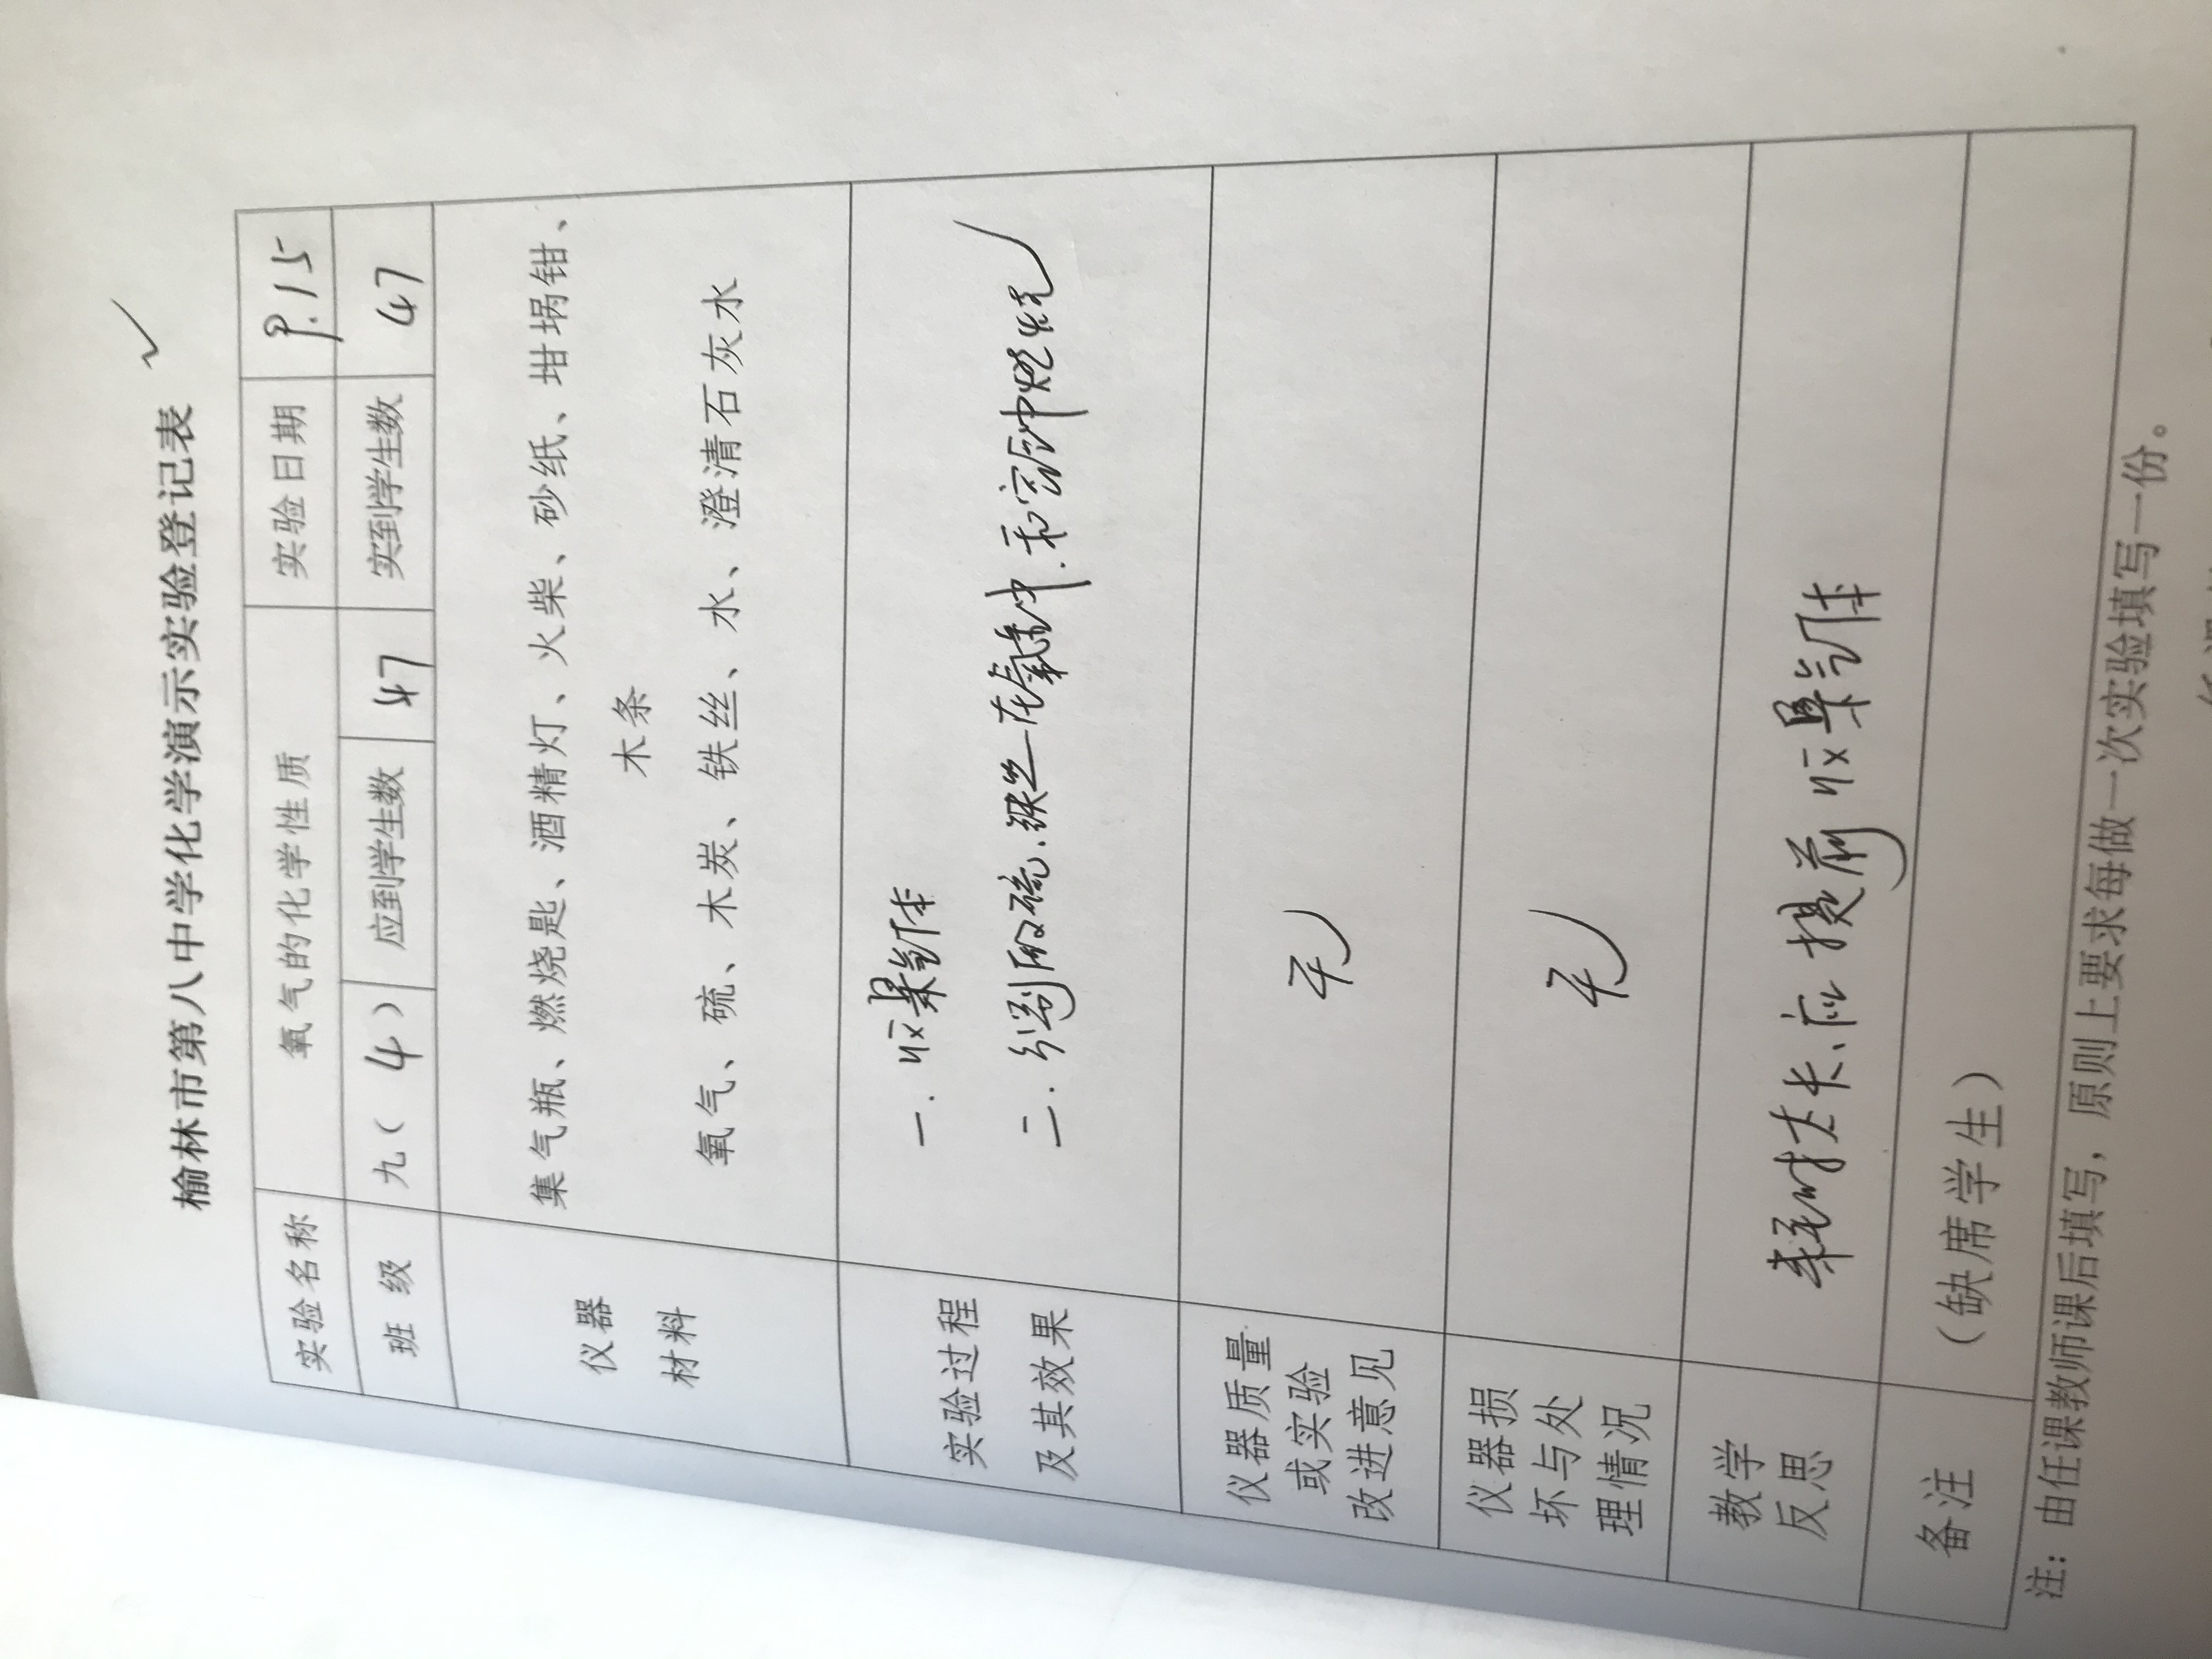 榆林市第八中学化学演示实验登记表
实验名称 氧气的化学性质 实验日期 9.15
班 级 九（ 4 ） 应到学生数 47 实到学生数 47
仪器
材料
集气瓶、燃烧匙、酒精灯、火柴、砂纸、坩埚钳、
木条
氧气、硫、木炭、铁丝、水、澄清石灰水
实验过程
及其效果
一. 收集气体
二. 分别取硫.铁丝在氧气中.和空气中燃烧
仪器质量
或实验
改进意见
无
仪器损
坏与处
理情况
无
教学
反思
耗时太长.应提前收集气体
备注
（缺席学生）
注：由任课教师课后填写，原则上要求每做一次实验填写一份。